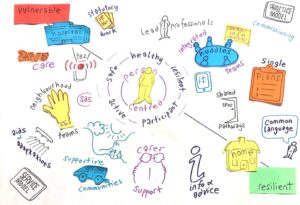 vulnerable
hospitals
statutory
work
Lead Professionals
PRACTICE
MODEL
commissioning
integrated
huddles
teams
single
Plans
care
neighbourhood
teams
SAS
safe
healthy
resilient
active
participant
Person
Centred
it
shared
Pathways
Common
language
aids
adaptations
supportive
communities
SERVICE
MODEL
carer
support
info &
advice
home
resilient